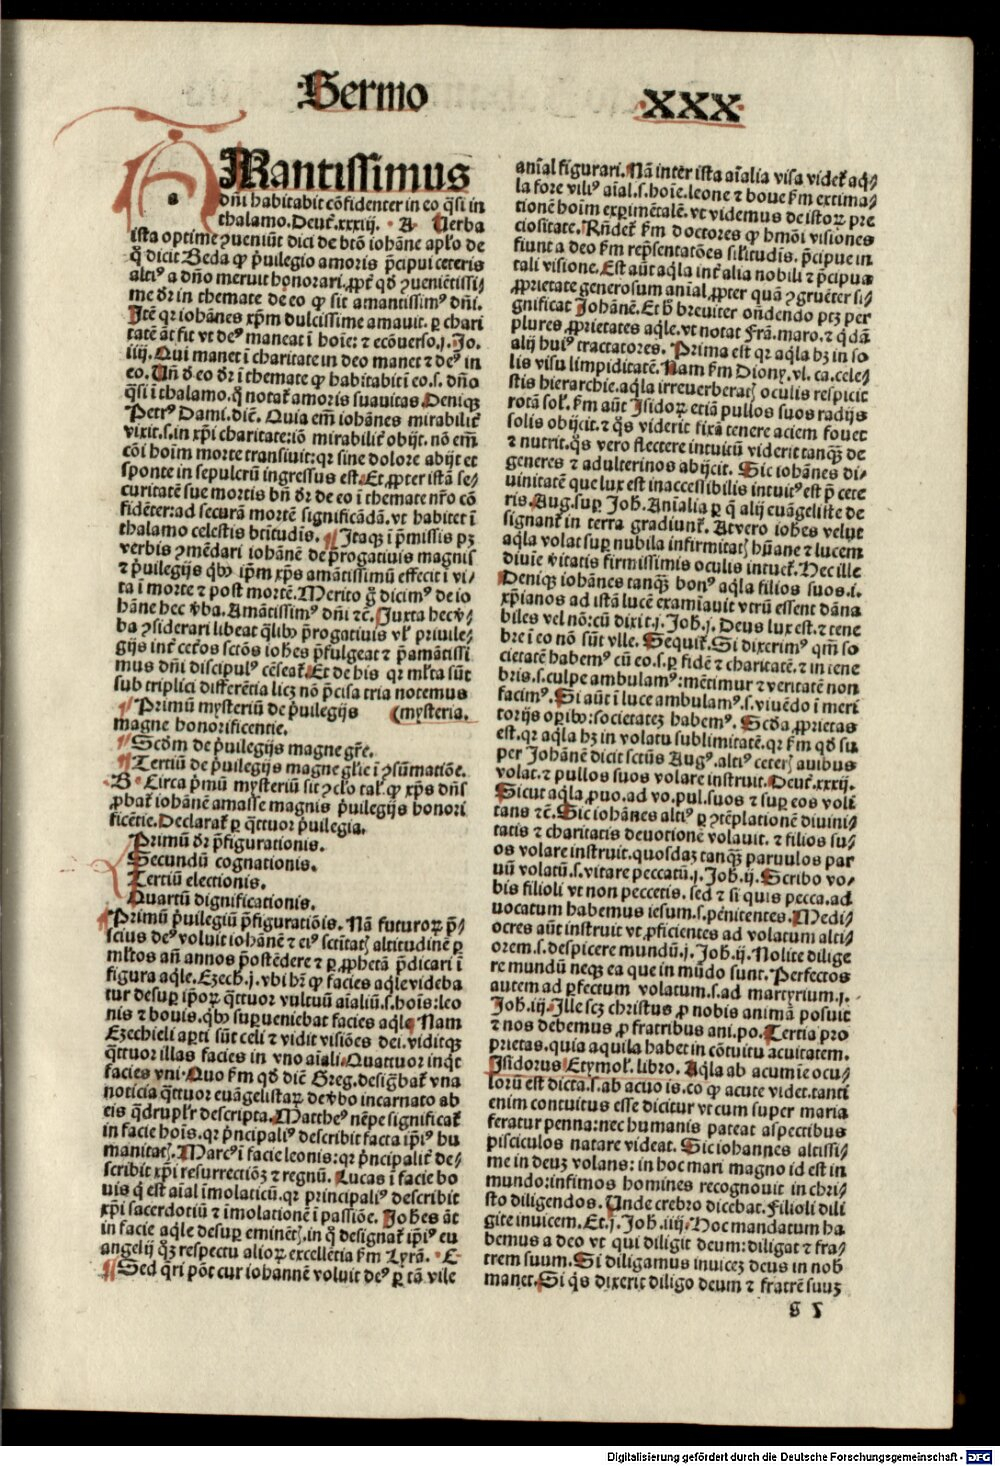 Sermo XXX
AMantissimus
dñi habitabit cõfidenter in eo q̃si in
thalamo. Deut̃. xxxiij. A Uerba
ista optime ꝯueniũt dici de btõ iohãne apl'o de
q̃ dicit Beda qꝫ p̃uilegio amoris p̃cipui ceteris
alti⁹ a dño meruit honorari, ꝓpt̃ qd̃ ꝯueniẽtissi⸗
me dr̃ in themate de eo qꝫ sit amantissim⁹ dñi.
Itẽ qꝛ iohãnes xp̃m dulcissime amauit. ꝑ chari
tatẽ ãt fit vt de⁹ maneat ĩ hoĩe: ⁊ ecõuerso. j. Jo.
iiij. Qui manet ĩ charitate in deo manet ⁊ de⁹ in
eo. Uñ d̃ eo dr̃ ĩ themate qꝫ habitabit ĩ eo. s. dño
q̃si ĩ thalamo. q̃ notat̃ amoris suauitas. Deniqꝫ
Petr⁹ Dami. diẽ. Quia em̃ iohãnes mirabilit̃
vixit. s. in xp̃i charitate: iõ mirabilit̃ obijt. nõ em̃
cõi hoĩm morte transiuit: qꝛ sine dolore abijt et
sponte in sepulcrũ ingressus est. Et ꝓpter istã se⸗
curitatẽ sue mortis bñ dr̃ de eo ĩ themate nr̃o cõ
fidẽter: ad securã mortẽ significãdã. vt habitet ĩ
thalamo celestis btĩtudĩs. ¶ Itaqꝫ ĩ p̃missis pꝫ
verbis ꝯmẽdari iohãnẽ de p̃rogatiuis magnis
⁊ p̃uilegijs qbꝫ ip̃m xp̃s amãtissimũ effecit ĩ vi⸗
ta ĩ morte ⁊ post mortẽ. Merito g̃ dicim⁹ de io
hãne hec v̾ba. Amãtissim⁹ dñi ⁊c̃. Juxta hec v̾⸗
ba ꝯsiderari libeat q̃libꝫ p̃rogatiuis vl' priuile⸗
gijs int̃ cet̾os sctõs iohẽs p̃fulgeat ⁊ p̃amãtissi
mus dñi discipul⁹ cẽseat̃. Et de his qꝛ ml'ta sũt
sub triplici differẽtia licꝫ nõ p̃cisa tria notemus
¶ Primũ mysteriũ de p̃uilegijs (mysteria.
magne honorificentie.
¶ Scd̃m de p̃uilegijs magne gr̃e.
¶ Tertiũ de p̃uilegijs magne gl'ie ĩ ꝯsũmatiõe.
B Circa p̃mũ mysteriũ sit ꝯcl'o tal' qꝫ xp̃s dñs
ꝓbat̃ iohãnẽ amasse magnis p̃uilegijs honori
ficẽtie. Declarat̃ ꝑ q̃ttuor p̃uilegia.
Primũ dr̃ p̃figurationis.
Secundũ cognationis.
Tertiũ electionis.
Quartũ dignificationis.
¶ Primũ p̃uilegiũ p̃figuratiõis. Nã futuroꝝ p̃⸗
scius de⁹ voluit iohãnẽ ⁊ ei⁹ sctĩtat̃ altitudinẽ ꝑ
ml'tos añ annos p̃ostẽdere ⁊ ꝑ ꝓphetã p̃dicari ĩ
figura aqile. Ezech. j. vbi hr̃ qꝫ facies aqile videba
tur desuꝑ ip̃oꝝ q̃ttuor vultuũ aĩaliũ. s. hoĩs: leo
nis ⁊ bouis. qbꝫ suꝑueniebat facies aqile. Nam
Ezechieli aꝑti sũt celi ⁊ vidit visiões dei. viditqꝫ
q̃ttuor illas facies in vno aĩali. Quattuor inqt̃
facies vni. Quo fm̃ qd̃ diẽ Greg. desig̃bat̃ vna
noticia q̃ttuor euãgelistaꝝ de v̾bo incarnato ab
eis q̃drupl'r descripta. Matthe⁹ nẽpe significat̃
in facie hoĩs. qꝛ p̃ncipali⁹ describit facta ip̃i⁹ hu
manitat̃. Marc⁹ ĩ facie leonis: qꝛ p̃ncipalit̃ de⸗
scribit xp̃i resurrectiõꝫ ⁊ regnũ. Lucas ĩ facie bo
uis q̃ est aĩal ĩmolaticũ. qꝛ principali⁹ describit
xp̃i sacerdotiũ ⁊ ĩmolationẽ ĩ passiõe. Johẽs ãt
in facie aqile desuꝑ eminẽt̃. in q̃ designat̃ ip̃i⁹ eu
angelij q̃ꝫ respectu alioꝝ excellẽtia fm̃ Lyrã. E
¶ Sed q̃ri põt cur iohannẽ voluit de⁹ ꝑ tã vile
aniãl figurari. Nã inter ista aĩalia visa videt̃ aq̃⸗
la fore vili⁹ aĩal. s. hoĩe. leone ⁊ boue fm̃ extima⸗
tionẽ hoĩm exꝑimẽtalẽ. vt videmus de istoꝝ pre
ciositate. Rñdet̃ fm̃ doctores qꝫ hmõi visiones
fiunt a deo fm̃ rep̃sentatões sil'itudĩs. p̃cipue in
tali visione. Est aũt aq̃la int̃ alia nobili ⁊ p̃cipua
ꝓprietate generosum aniãl, ꝓpter quã ꝯgruẽter si⸗
gnificat Johãnẽ. Et h̃ breuiter oñdendo ptꝫ per
plures ꝓprietates aqile. vt notat Frã. maro. ⁊ q̃dã
alij hui⁹ tractatores. Prima est qꝛ aq̃la hꝫ in so
lis visu limpiditatẽ. Nam fm̃ Diony. vl. ca. cele⸗
stis hierarchie. aq̃la irreuerberat̃ oculis respicit
rotã sol'. fm̃ aũt Isidoꝝ etiã pullos suos radijs
solis obijcit. ⁊ q̃s viderit fixã tenere aciem fouet
⁊ nutrit. q̃s vero flectere intuitũ viderit tanqꝫ de
generes ⁊ adulterinos abijcit. Sic iohãnes di⸗
uinitatẽ que lux est inaccessibilis intuit⁹ est p̃ cete
ris. Aug. suꝑ Joh. Aniãlia ꝑ q̃ alij euãgeliste de
signant̃ in terra gradiunt̃. At vero iohẽs velut
aq̃la volat suꝑ nubila infirmitat̃ hũane ⁊ lucem
diuĩe v̾itatis firmissimis oculis intuet̃. Hec ille
Deniqꝫ iohãnes tanqꝫ bon⁹ aq̃la filios suos. i.
xp̃ianos ad istã lucẽ examĩauit vtrũ essent dãna
biles vel nõ: cũ dixit. j. Joh. j. Deus lux est. ⁊ tene
bre ĩ eo nõ sũt vlle. Sequit̃. Si dixerim⁹ qm̃ so
cietatẽ habem⁹ cũ eo. s. ꝑ fidẽ ⁊ charitatẽ. ⁊ in tene
bris. s. culpe ambulam⁹: mẽtimur ⁊ veritatẽ non
facim⁹. Si aũt ĩ luce ambulam⁹. s. viuẽdo ĩ meri
torijs oꝑibꝫ: societateꝫ habem⁹. Scd̃a ꝓprietas
est. qꝛ aq̃la hꝫ in volatu sublimitatẽ. qꝛ fm̃ qd̃ su
per Johãnẽ dicit sctũs Aug⁹. alti⁹ ceter̃ auibus
volat. ⁊ pullos suos volare instruit. Deut̃. xxxij.
Sicut aq̃la ꝓuo. ad vo. pul. suos ⁊ suꝑ eos voli
tans ⁊c̃. Sic iohãnes alti⁹ ꝑ ꝯtẽplationẽ diuini⸗
tatis ⁊ charitatis deuotionẽ volauit. ⁊ filios su⸗
os volare instruit. quosdaꝫ tanqꝫ paruulos par
uũ volatũ. s. vitare peccatũ. j. Joh. ij. Scribo vo⸗
bis filioli vt non peccetis. sed ⁊ si quis pecca. ad
uocatum habemus iesum. s. penitentes. Medi⸗
ocres aũt instruit vt ꝓficientes ad volatum alti⸗
orem. s. despicere mundũ. j. Joh. ij. Nolite dilige
re mundũ neqꝫ ea que in mũdo sunt. Perfectos
autem ad ꝑfectum volatum. s. ad martyrium. j.
Joh. iij. Ille scꝫ christus ꝓ nobis animã posuit
⁊ nos debemus ꝓ fratribus ani. po. Tertia pro
prietas. quia aquila habet in cõtuitu acuitatem.
Isidorus Etymol'. libro. Aq̃la ab acumĩe ocu⸗
lorũ est dicta. s. ab acuo is. eo qꝫ acute videt. tanti
enim contuitus esse dicitur vt cum super maria
feratur penna: nec humanis pateat aspectibus
pisciculos natare videat. Sic iohannes altissi⸗
me in deuꝫ volans: in hoc mari magno id est in
mundo: infimos homines recognouit in chri⸗
sto diligendos. Unde crebro dicebat. Filioli dili
gite inuicem. Et. j. Joh. iiij. Hoc mandatum ha
bemus a deo vt qui diligit deum: diligat ⁊ fra⸗
trem suum. Si diligamus inuiceꝫ deus in nob̃
manet. Si q̃s dixerit diligo deum ⁊ fratrẽ suuꝫ
Digitalisierung gefördert durch die Deutsche Forschungsgemeinschaft - DFG